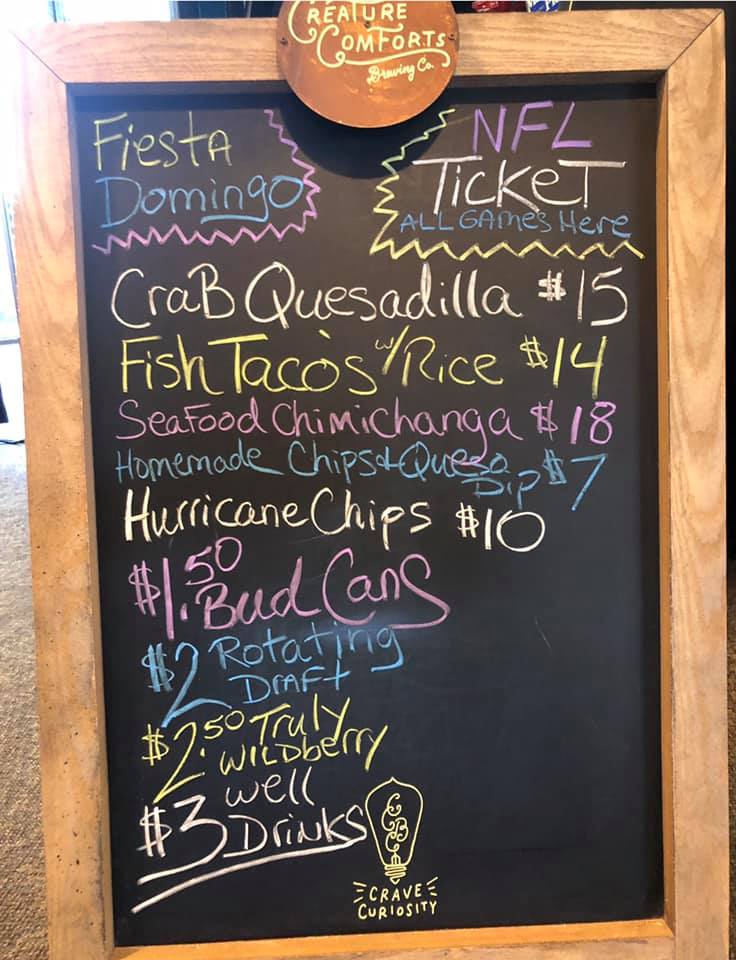 CREATURE
COMFORTS
Brewing Co.
Fiesta
Domingo
NFL
Ticket
ALL GAMES Here
CraB Quesadilla $15
Fish Tacos w/ Rice $14
Seafood Chimichanga $18
Homemade Chips & Queso
Dip $7
Hurricane Chips $10
$1.50 Bud Cans
$2 Rotating
Draft
$2.50 Truly
WILDberry
$3 well
Drinks
CCB
CRAVE
CURIOSITY